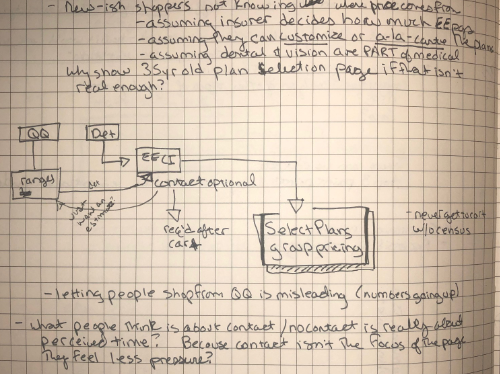 - New-ish shoppers not knowing where price comes from
- assuming insurer decides how much EE pays
- assuming they can customize or a-la-carte the plans
- assuming dental & vision are PART of medical
Why show 35yr old plan selection page if that isn't
real enough?
QQ
Dept
EECI
ranges
contact optional
Just want an
estimate?
req'd after
cart
Select Plans
group pricing
- never get to cart
w/o census
- letting people shop from QQ is misleading (numbers going up)
- what people think is about contact/no contact is really about
perceived time? Because contact isn't the focus of the page
They feel less pressure?